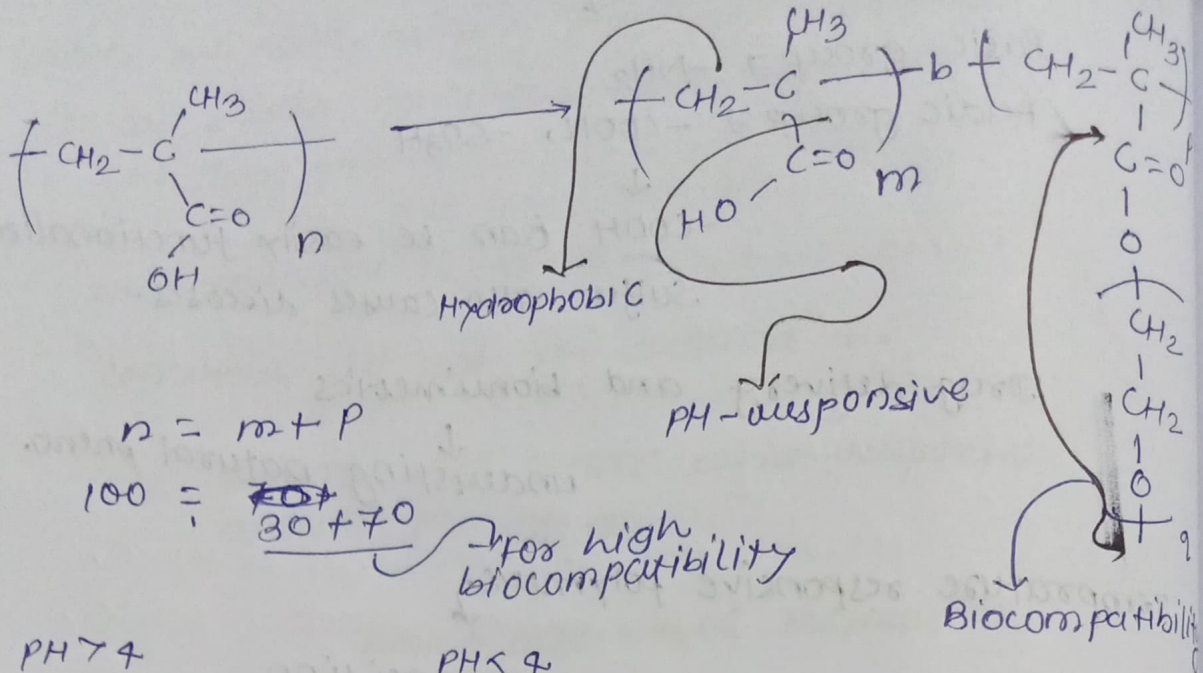 CH3
( CH2 - C )
C=O
OH
n
CH3
( CH2 - C ) b
C=O
HO
m
CH3
( CH2 - C )
C=O
O
( CH2
CH2
O
) q
Hydrophobic
PH-responsive
Biocompatibili
n = m + p
100 = 30 + 70
for high
biocompatibility
PH > 4 PH < 4